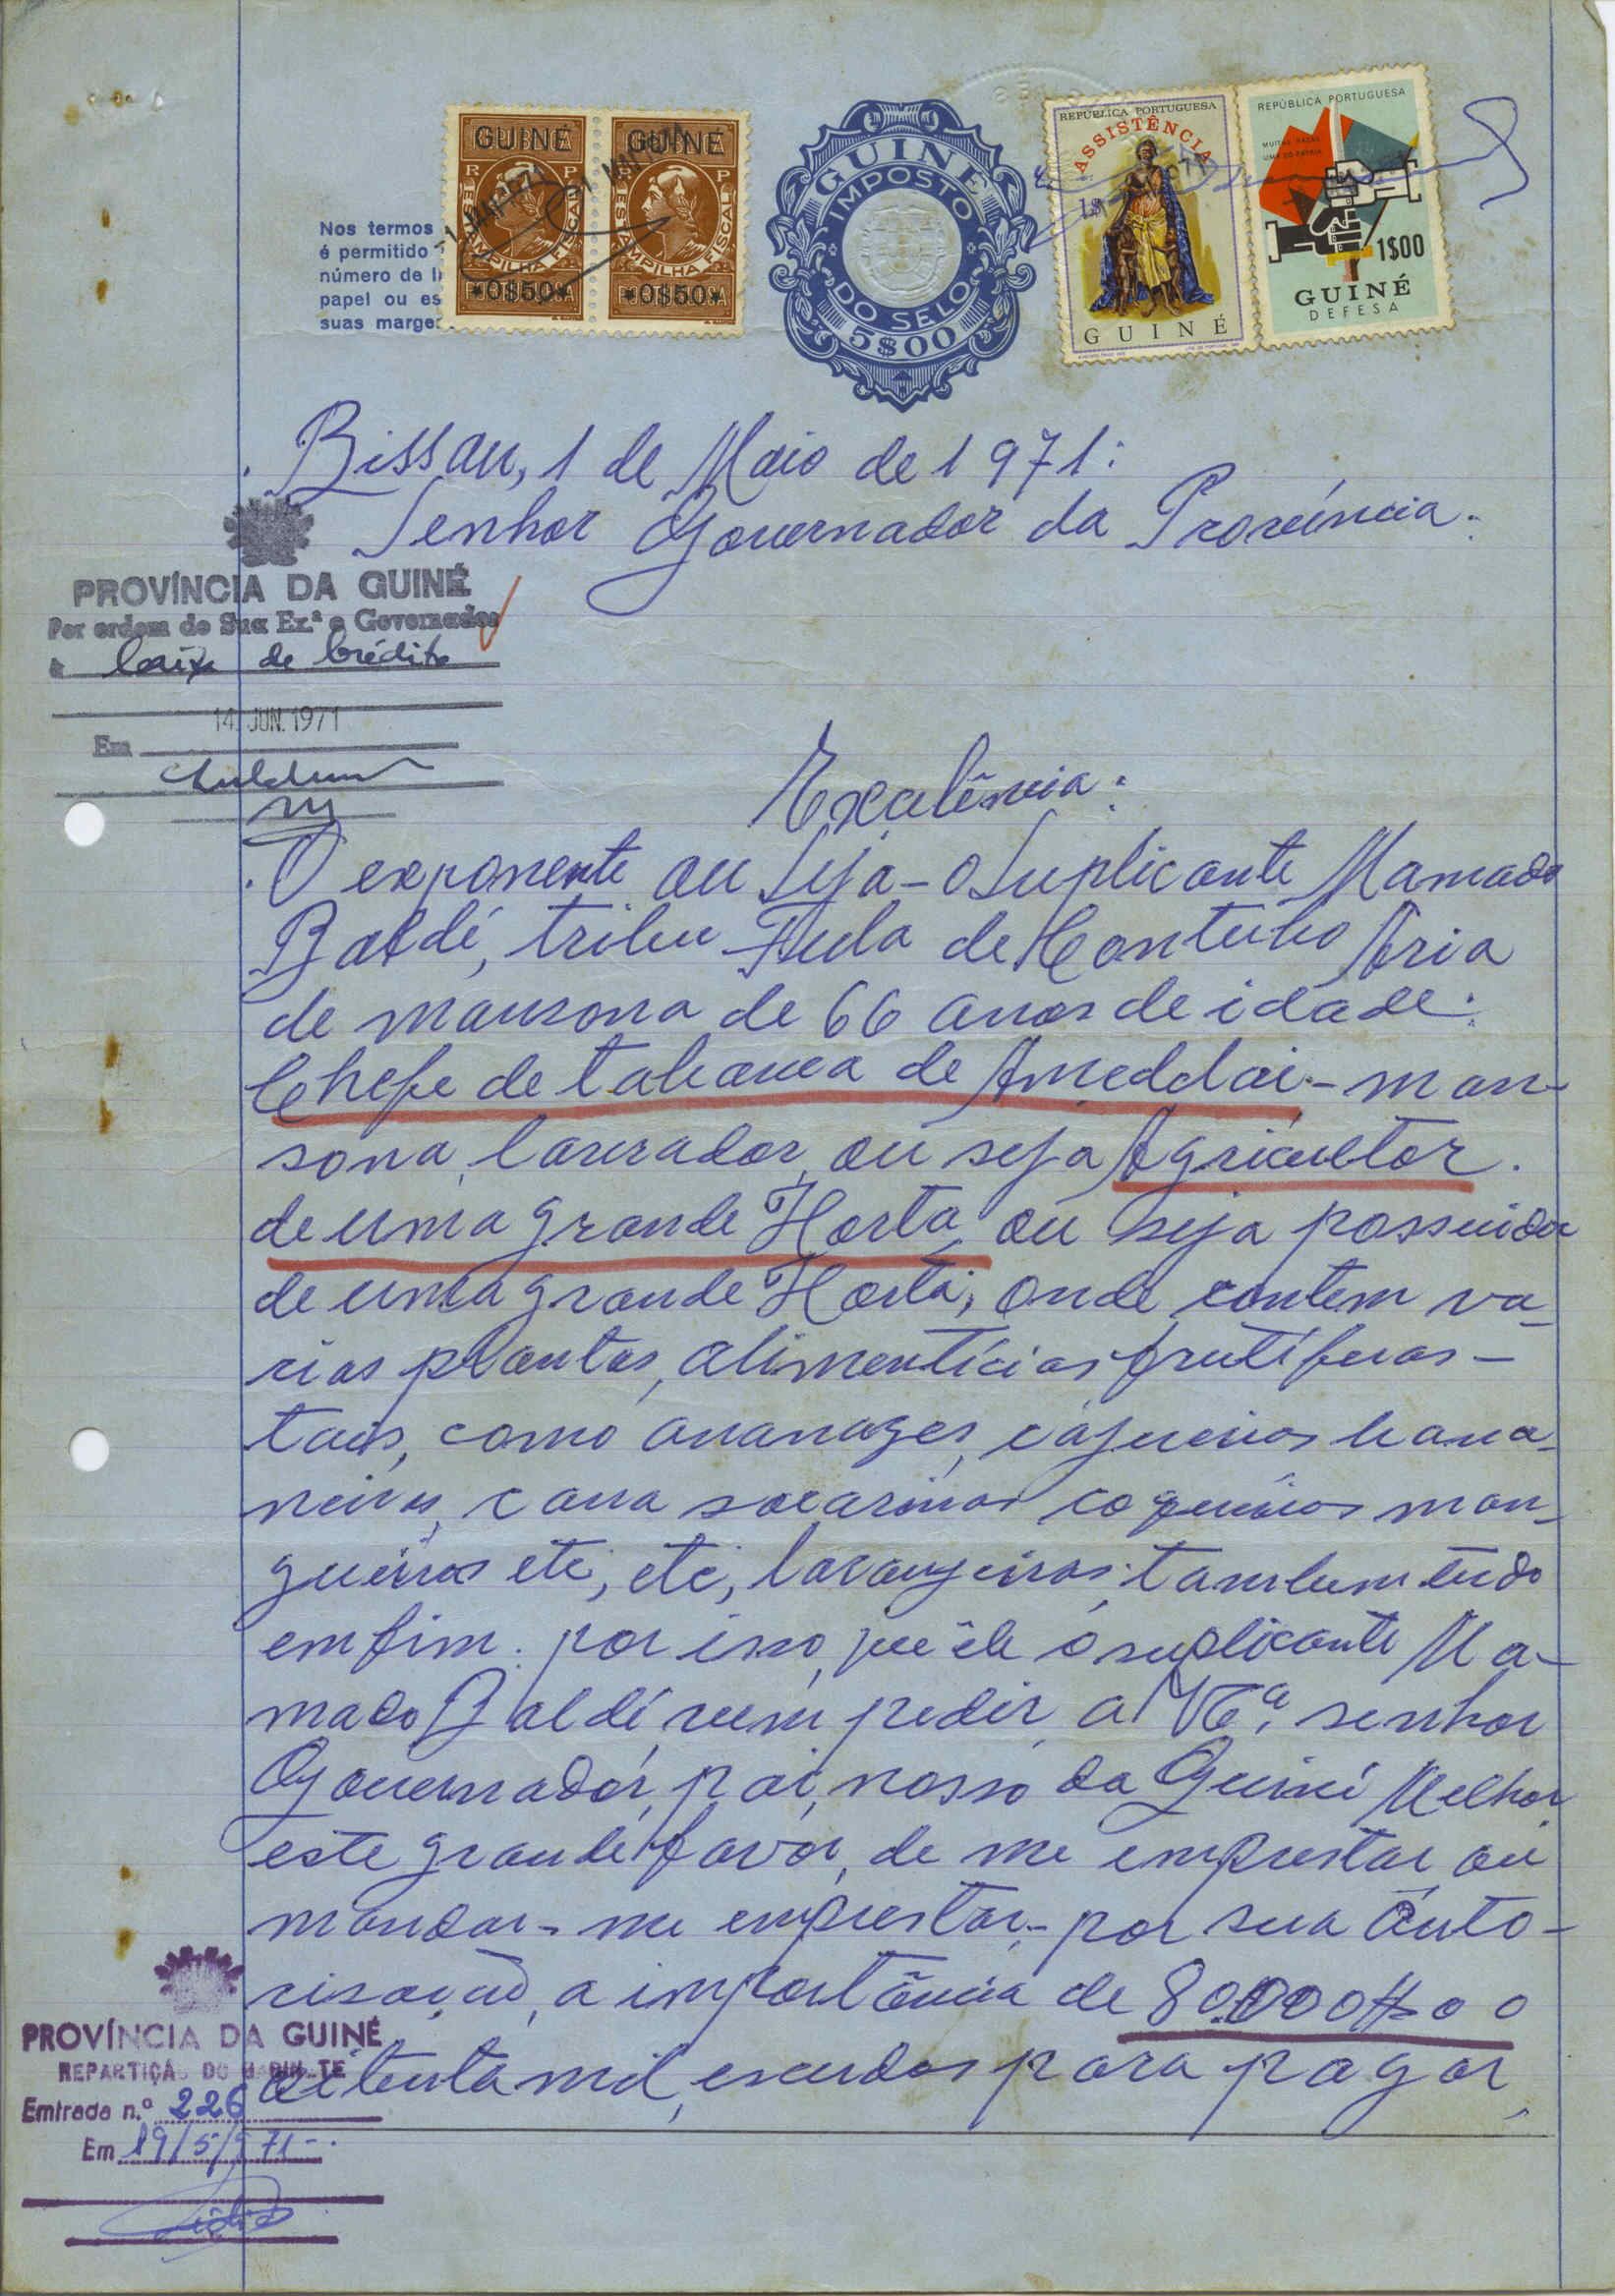 GUINÉ
ESTAMPILHA FISCAL
*0$50*
GUINÉ
ESTAMPILHA FISCAL
*0$50*
GUINÉ
IMPOSTO
DO SELO
5$00
REPÚBLICA PORTUGUESA
ASSISTÊNCIA
1$
GUINÉ
REPÚBLICA PORTUGUESA
MUITAS RAÇAS
UMA SÓ PÁTRIA
1$00
GUINÉ
DEFESA
Nos termos
é permitido
número de li
papel ou es
suas marge
Bissau, 1 de Maio de 1971:
Senhor Governador da Provincia:
PROVÍNCIA DA GUINÉ
Por ordem de Sua Ex.ª o Governador
à Caixa de Crédito
14. JUN. 1971
Em
Excelência:
O exponente ou seja - o Suplicante Mamado
Baldé, tribu Fula de Contubo Aria
de mansona de 66 anos de idade:
Chefe de tabanca de Ameddai - man-
sona, lavrador, ou seja Agricultor.
de uma grande Horta, ou seja possuidor
de uma grande Horta, onde contem va-
rias plantas, alimentícias frutíferas -
tais, como ananazes, cajueiros bana-
neiras, cana socarinas coqueiros man-
gueiros etc, etc, laranjeiras, tambem tudo
emfim. por isso, que êle o suplicante Ma-
mado Baldé, vem pedir, a V Eª. senhor
Governador, pai, nosso da Guiné Melhor
este grande favor, de me emprestar, ou
mandar-me emprestar - por sua auto-
risação, a importância de 80.000$00
oitenta mil, escudos para pagar,
PROVÍNCIA DA GUINÉ
REPARTIÇÃO DO GABINETE
Entrada n.º 226
Em 19/5/971